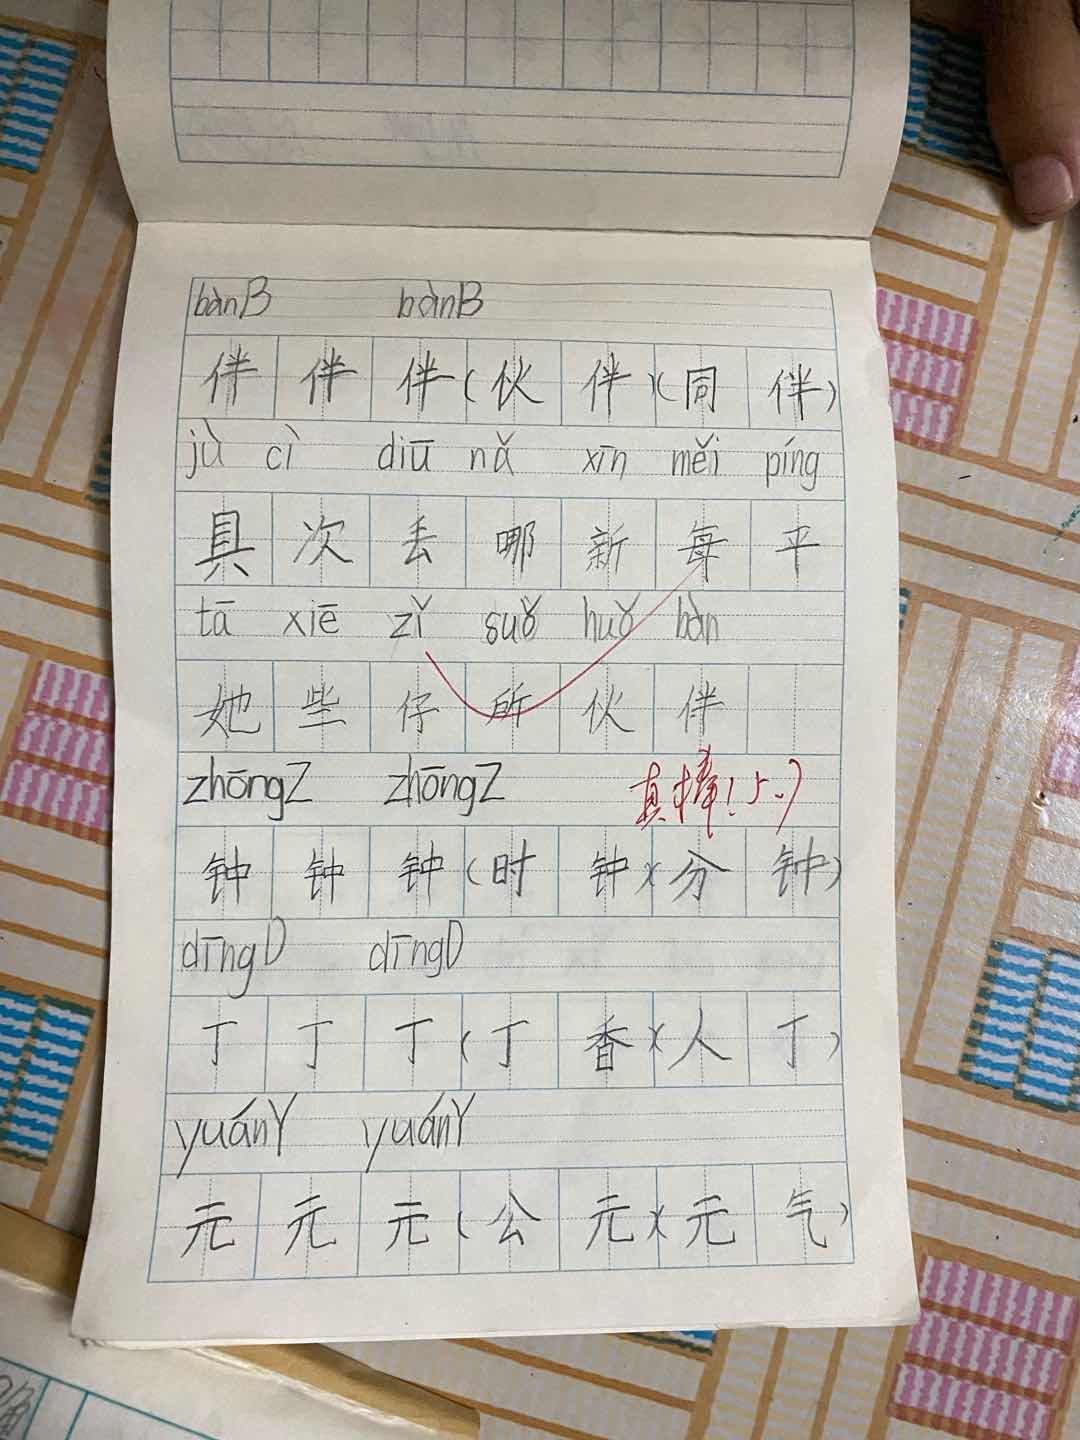 bànB bànB
伴伴伴(伙伴)(同伴)
jù cì diū nǎ xīn měi píng
具次丢哪新每平
tā xiē zǐ suǒ huǒ bàn
她些仔所伙伴
zhōngZ zhōngZ 真棒!5.7
钟钟钟(时钟)(分钟)
dīngD dīngD
丁丁丁(丁香)(人丁)
yuánY yuánY
元元元(公元)(元气)